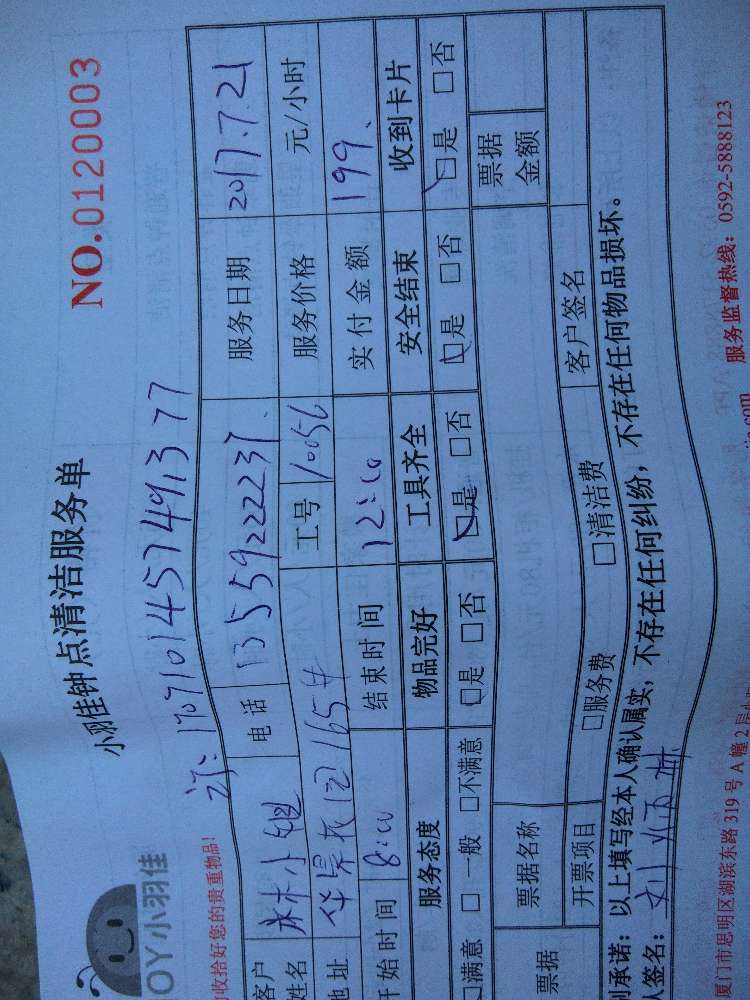 小羽佳钟点清洁服务单
NO.0120003
OY小羽佳
170710145749377
收拾好您的贵重物品!
客户姓名 林小姐 电话 13559222237 服务日期 2017.7.21
地址 165 工号 10056 服务价格 元/小时
开始时间 8:00 结束时间 12:00 实付金额 199
服务态度 物品完好 工具齐全 安全结束 收到卡片
□满意 □一般 □不满意 □是 □否 □是 □否 □是 □否 □是 □否
票据 票据名称 票据金额
开票项目 □服务费 □清洁费 客户签名
承诺：以上填写经本人确认属实，不存在任何纠纷，不存在任何物品损坏。
签名：
厦门市思明区湖滨东路 319 号 A 幢 2 服务监督热线：0592-5888123
.com